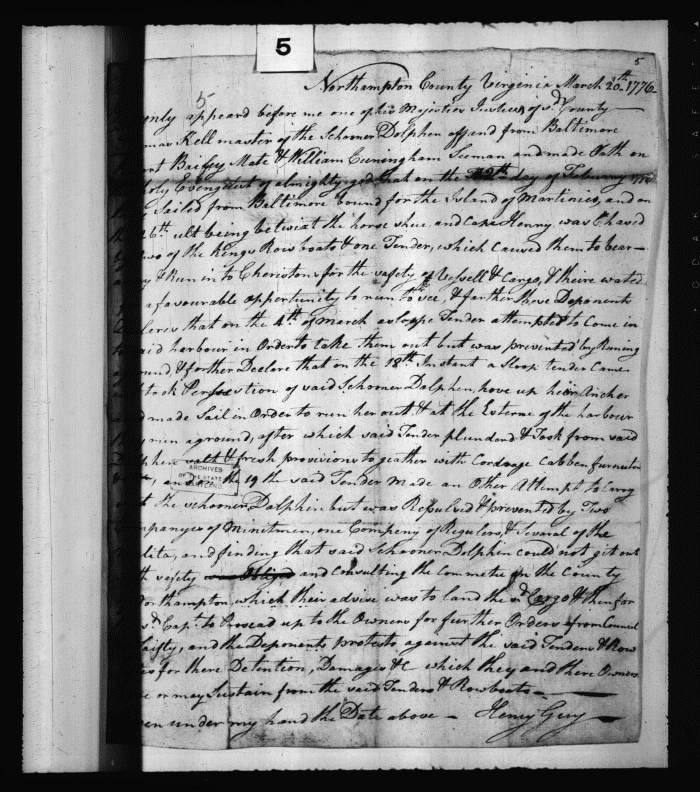 5
5
5
Northampton County Virginia March 20th 1776
nly appeard before me one of his Majesties Justices of sd County
mas Kell master of the Schooner Dolphen of and from Baltimore
rt Mate & William Cuningham Seeman and made Oath on
holy Evengelest of almighty god that on the day of February 1776
Sailed from Baltimore bound for the Island of Martinico, and on
26th ult being betwixt the horse shue and Cape Henny was Chased
two of the Kings Row boats & one Tender, which caused them to bear
y & Run in to Cheristons for the safety of Vessell & Cargo, & theire wated
a favourable opportunity to run to , & farther these Deponents
lares that on the 4th of March a sloope Tender attempted to Come in
aid harbour in Order to take them out but was prevented by Runing
und, & forther Declare that on the 18th Instant a Sloop tender Came
took Persestion of said Schooner Dolphen, hove up heir Ancher
d made Sail in Order to run her out & at the Esterne of the harbour
run aground, after which said Tender plunderd & Took from said
phen salt & fresh provisions to geather with Cordoage Cabben furneture
, and the 19th said Tender made an Other Attempt to Carry
t The schooner Dolphin but was Repulsed & prevented by Two
mpanyes of Minitmen, one Company of Regulers, & Several of the
lita, and finding that said Schooner Dolphen could not git out
th safety and Consulting the Commete in the County
orthampton, which their advise was to land the sd Cargo & then for
sd Capt. to Prosead up to the Owners for further Orders from Council
Saifty, and the Deponents protests against the said Tenders & Row
s for there Detention, Damages &c which they and there Owners
e or may Sustain from the said Tenders & Row boats
en under my hand the Date above — Henry Guy
ARCHIVES
OF THE STATE